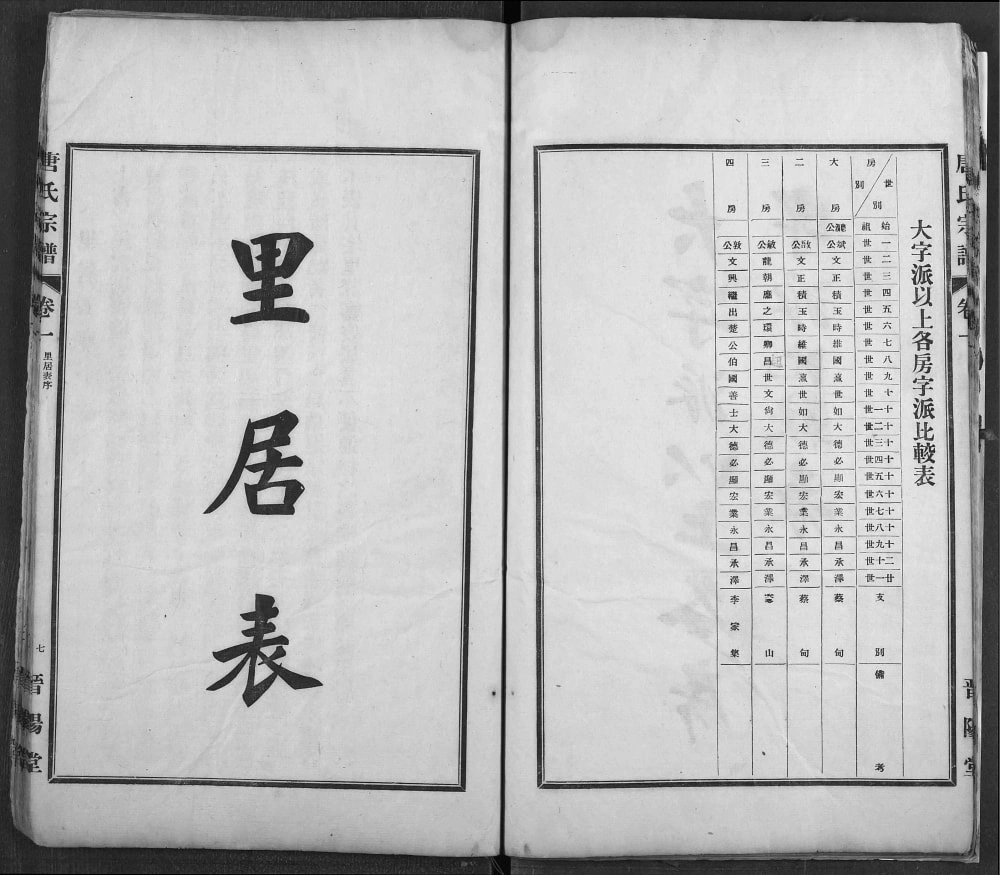 唐氏宗譜
卷一
晋陽堂
大字派以上各房字派比較表
世別
房別
始祖
一世
二世
三世
四世
五世
六世
七世
八世
九世
十世
十一世
十二世
十三世
十四世
十五世
十六世
十七世
十八世
十九世
二十世
廿一世
支別
備考
大房
聽公
斌公
文
正
積
玉
時
維
國
瀛
世
如
大
德
必
顯
宏
業
永
昌
承
澤
蔡甸
二房
文
正
積
玉
時
維
國
瀛
世
如
大
德
必
顯
宏
業
永
昌
承
澤
蔡甸
三房
敏公
龍
朝
應
之
環
卿
昌
世
文
尙
大
德
必
顯
宏
業
永
昌
承
澤
山
四房
敦公
文
興
繼
出
楚
公
伯
國
善
士
大
德
必
顯
宏
業
永
昌
承
澤
李家集
里居表
唐氏宗譜
卷一
里居表序
七
晋陽堂